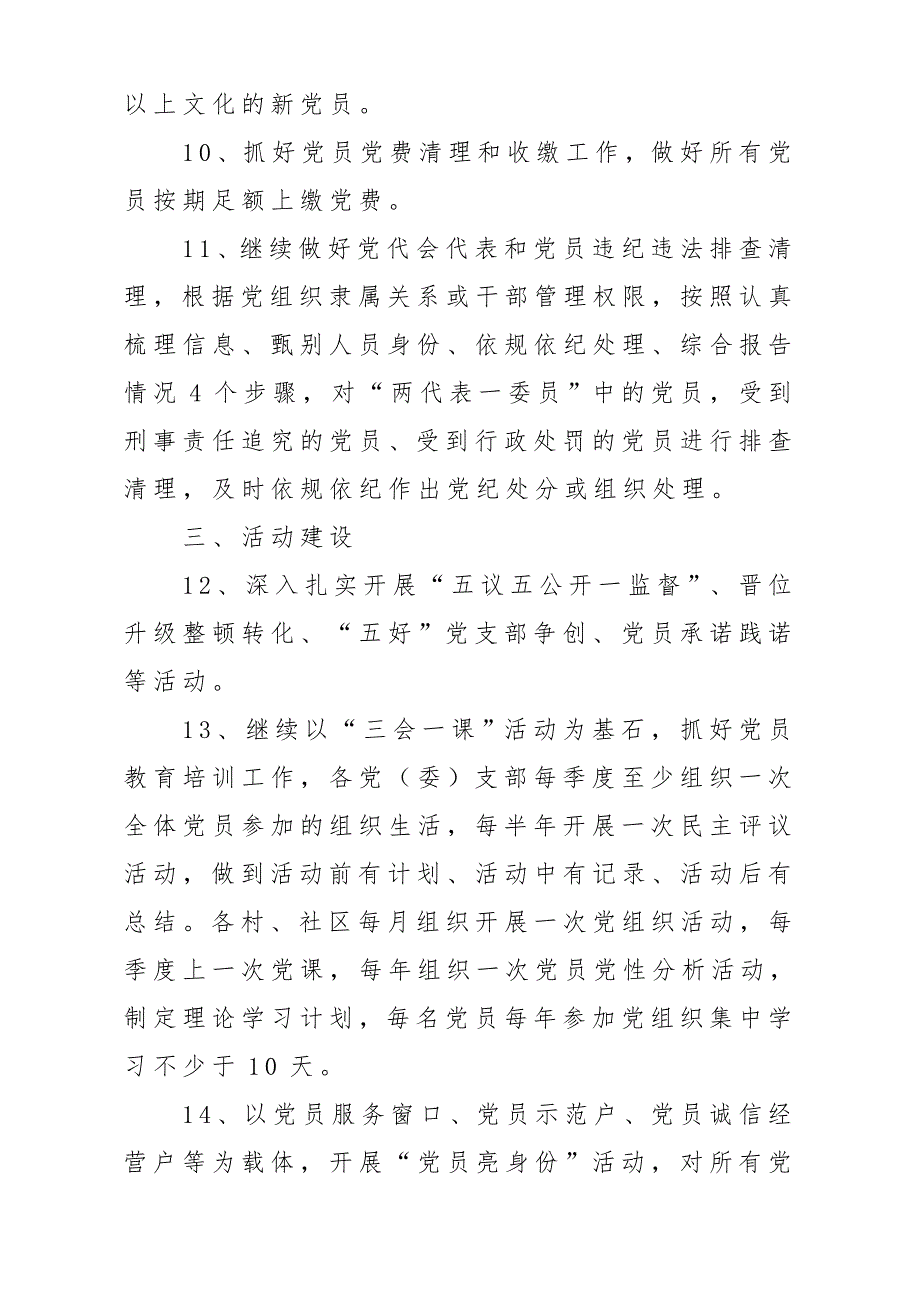 以上文化的新党员。
10、抓好党员党费清理和收缴工作，做好所有党
员按期足额上缴党费。
11、继续做好党代会代表和党员违纪违法排查清
理，根据党组织隶属关系或干部管理权限，按照认真
梳理信息、甄别人员身份、依规依纪处理、综合报告
情况 4 个步骤，对“两代表一委员”中的党员，受到
刑事责任追究的党员、受到行政处罚的党员进行排查
清理，及时依规依纪作出党纪处分或组织处理。
三、活动建设
12、深入扎实开展“五议五公开一监督”、晋位
升级整顿转化、“五好”党支部争创、党员承诺践诺
等活动。
13、继续以“三会一课”活动为基石，抓好党员
教育培训工作，各党（委）支部每季度至少组织一次
全体党员参加的组织生活，每半年开展一次民主评议
活动，做到活动前有计划、活动中有记录、活动后有
总结。各村、社区每月组织开展一次党组织活动，每
季度上一次党课，每年组织一次党员党性分析活动，
制定理论学习计划，每名党员每年参加党组织集中学
习不少于 10 天。
14、以党员服务窗口、党员示范户、党员诚信经
营户等为载体，开展“党员亮身份”活动，对所有党